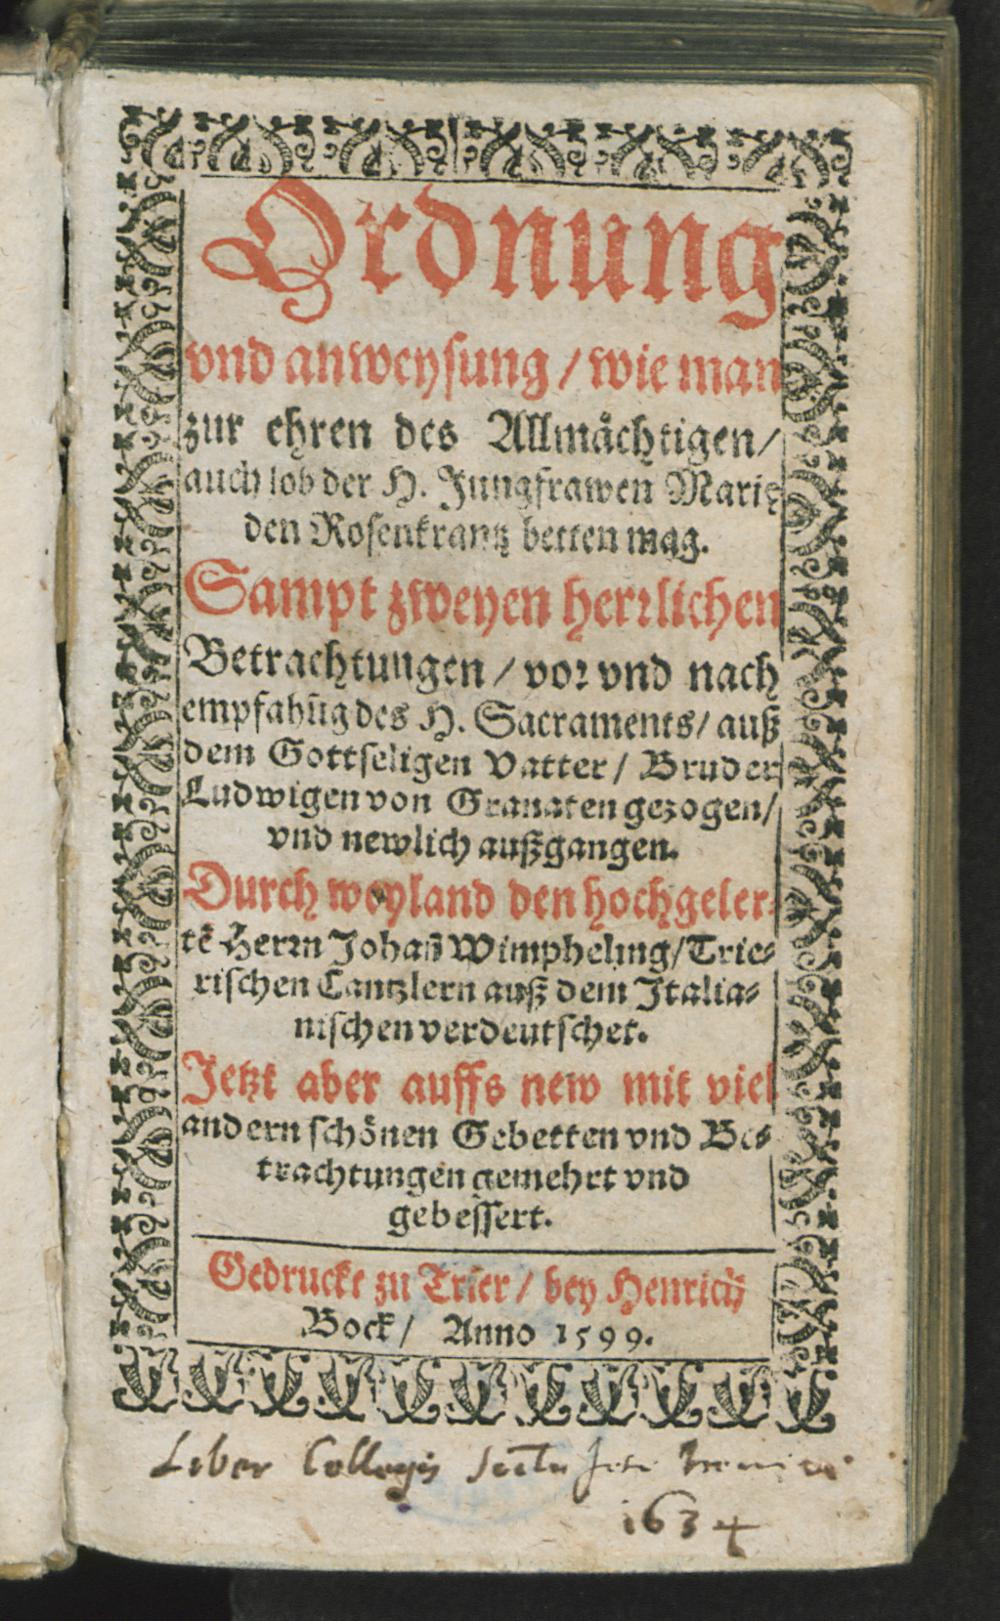 Ordnung
vnd anweysung / wie man
zur ehren des Allmåchtigen /
auch lob der H. Jungfrawen Marię
den Rosenkrantz betten mag.
Sampt zweyen herrlichen
Betrachtungen / vor vnd nach
empfahūg des H. Sacraments / auß
dem Gottseligen Vatter / Bruder
Ludwigen von Granaten gezogen /
vnd newlich außgangen.
Durch weyland den hochgeler-
tē Herrn Johañ Wimpheling / Trie-
rischen Cantzlern auß dem Italia-
nischen verdeutschet.
Jetzt aber auffs new mit viel
andern schönen Gebetten vnd Be-
trachtungen gemehrt vnd
gebessert.
Gedruckt zu Trier / bey Henrich
Bock / Anno 1599.
Liber Collegij Soctis Jesu
1634